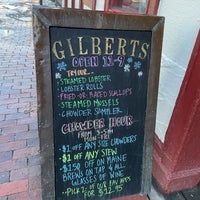 GILBERTS
OPEN 11-9
TRY OUR...
• STEAMED LOBSTER
• LOBSTER ROLLS
• FRIED-OR-BAKED SCALLOPS
• STEAMED MUSSELS
• CHOWDER SAMPLER
CHOWDER HOUR
FROM 3-5PM
MON-FRI
$1 OFF ANY SIZE CHOWDERS
$2 OFF ANY STEW
$1.50 OFF ON MAINE
BREWS ON TAP & ALL
GLASSES OF WINE
PICK 2 OF OUR FAV APPS
FOR $12.95